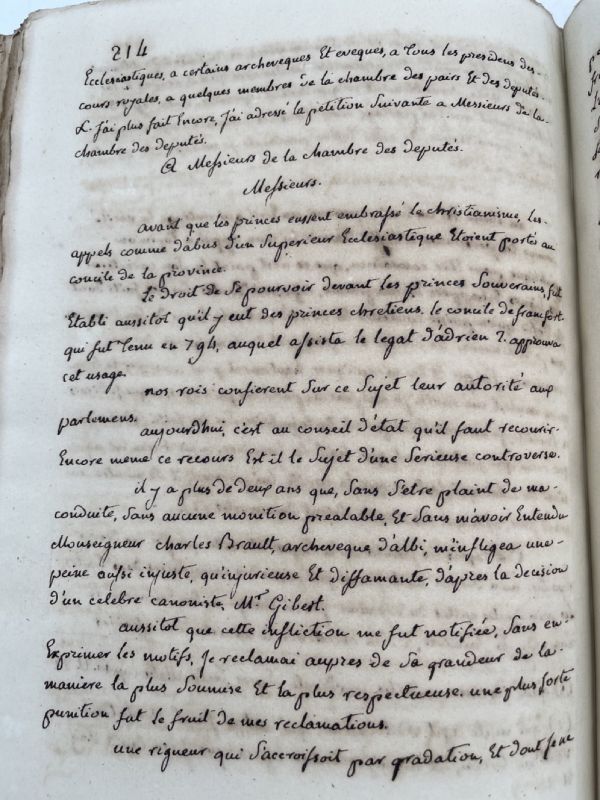 214
Ecclesiastiques, a certains archeveques Et eveques, a tous les presidens des
cours royales, a quelques membres de la chambre des pairs Et des deputés.
&. j'ai plus fait Encore, j'ai adressé la petition Suivante a Messieurs de la
chambre des deputés.
A Messieurs de la chambre des deputés.
Messieurs.
avant que les princes eussent embrassé le christianisme, les
appels comme d'abus d'un Superieur Ecclesiastique Etoient portés au
concile de la province.
Le droit de Se pourvoir devant les princes Souverains, fut
Etabli aussitot qu'il y eut des princes chretiens. le concile de francfort
qui fut tenu en 794, auquel assista le legat d'adrien 1. approuva
cet usage.
nos rois confierent Sur ce Sujet leur autorité aux
parlemens.
aujourd'hui, c'est au conseil d'état qu'il faut recourir.
Encore meme ce recours Est il le Sujet d'une Serieuse controverse.
il y a plus de deux ans que, Sans S'etre plaint de ma
conduite, Sans aucune monition prealable, Et Sans m'avoir Entendu
Monseigneur charles Brault, archeveque d'albi, m'infligea une
peine aussi injuste, qu'injurieuse Et diffamante, d'apres la decision
d'un celebre canoniste, Mr. Gibert.
aussitot que cette infliction me fut notifiée, Sans en
Exprimer les motifs, Je reclamai aupres de Sa grandeur de la
maniere la plus Soumise Et la plus respectueuse. une plus forte
punition fut le fruit de mes reclamations.
une rigueur qui S'accroissoit par gradation, Et dont je ne